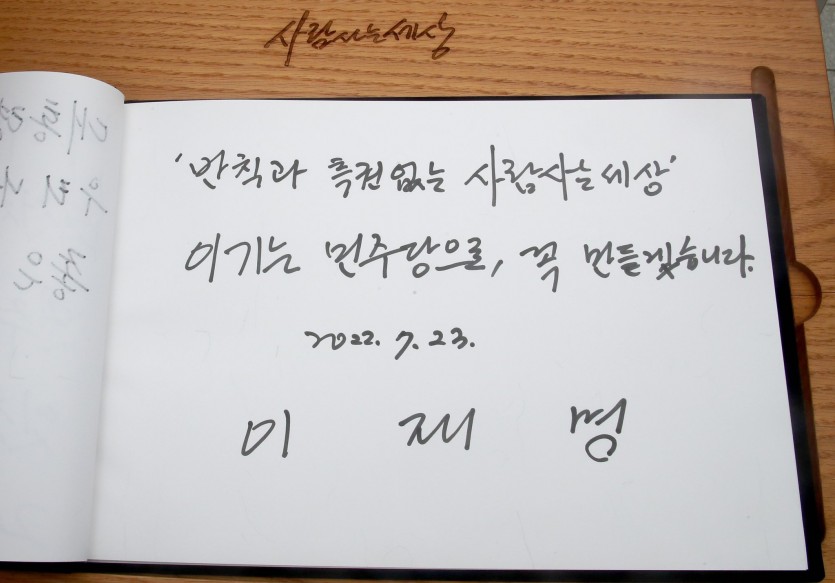 사람사는세상
'반칙과 특권없는 사람사는세상'
이기는 민주당으로, 꼭 만들겠습니다.
2022. 7. 23.
이 재 명